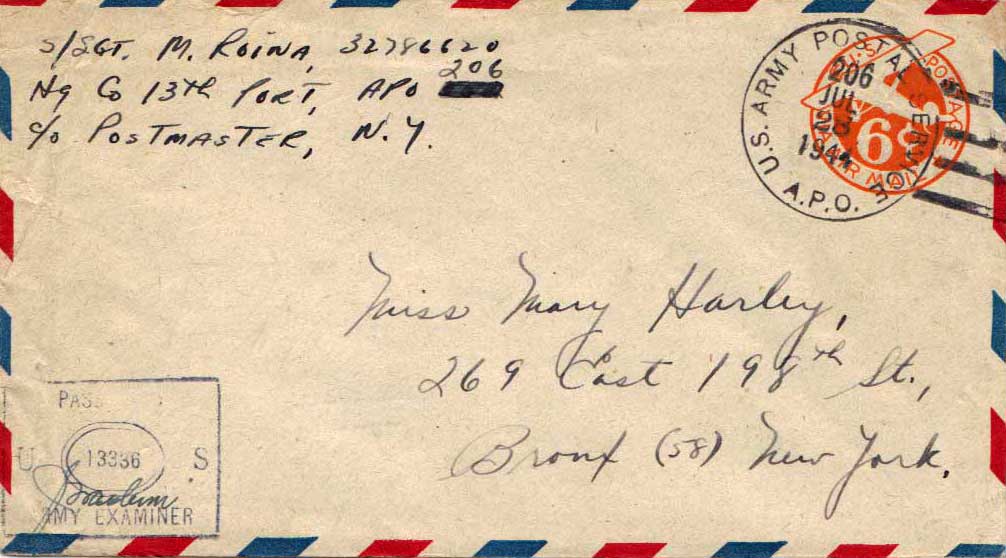 S/SGT. M. ROINA, 32786620
206
Hq Co 13th PORT, APO
c/o POSTMASTER, N.Y.
U.S. ARMY POSTAL SERVICE
A.P.O.
206
JUL
28
1944
U.S. POSTAGE
6¢
AIR MAIL
Miss Mary Harley,
269 East 198th St.,
Bronx (58) New York.
PASS
U 13336 S
MY EXAMINER